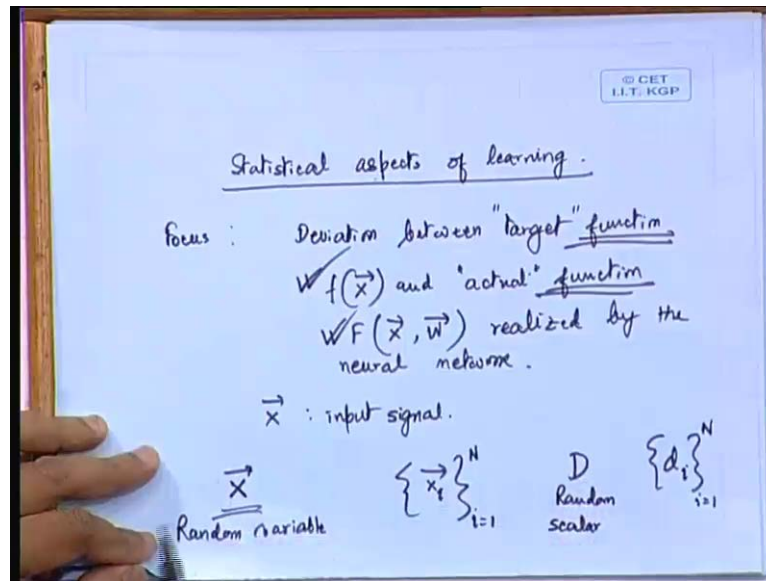 © CET
I.I.T. KGP
Statistical aspects of learning.
Focus : Deviation between "target" function
f(x⃗) and "actual" function
F(x⃗, w⃗) realized by the
neural network.
x⃗ : input signal.
X⃗ {x⃗ᵢ}ᴺᵢ₌₁ D {dᵢ}ᴺᵢ₌₁
Random variable Random
scalar